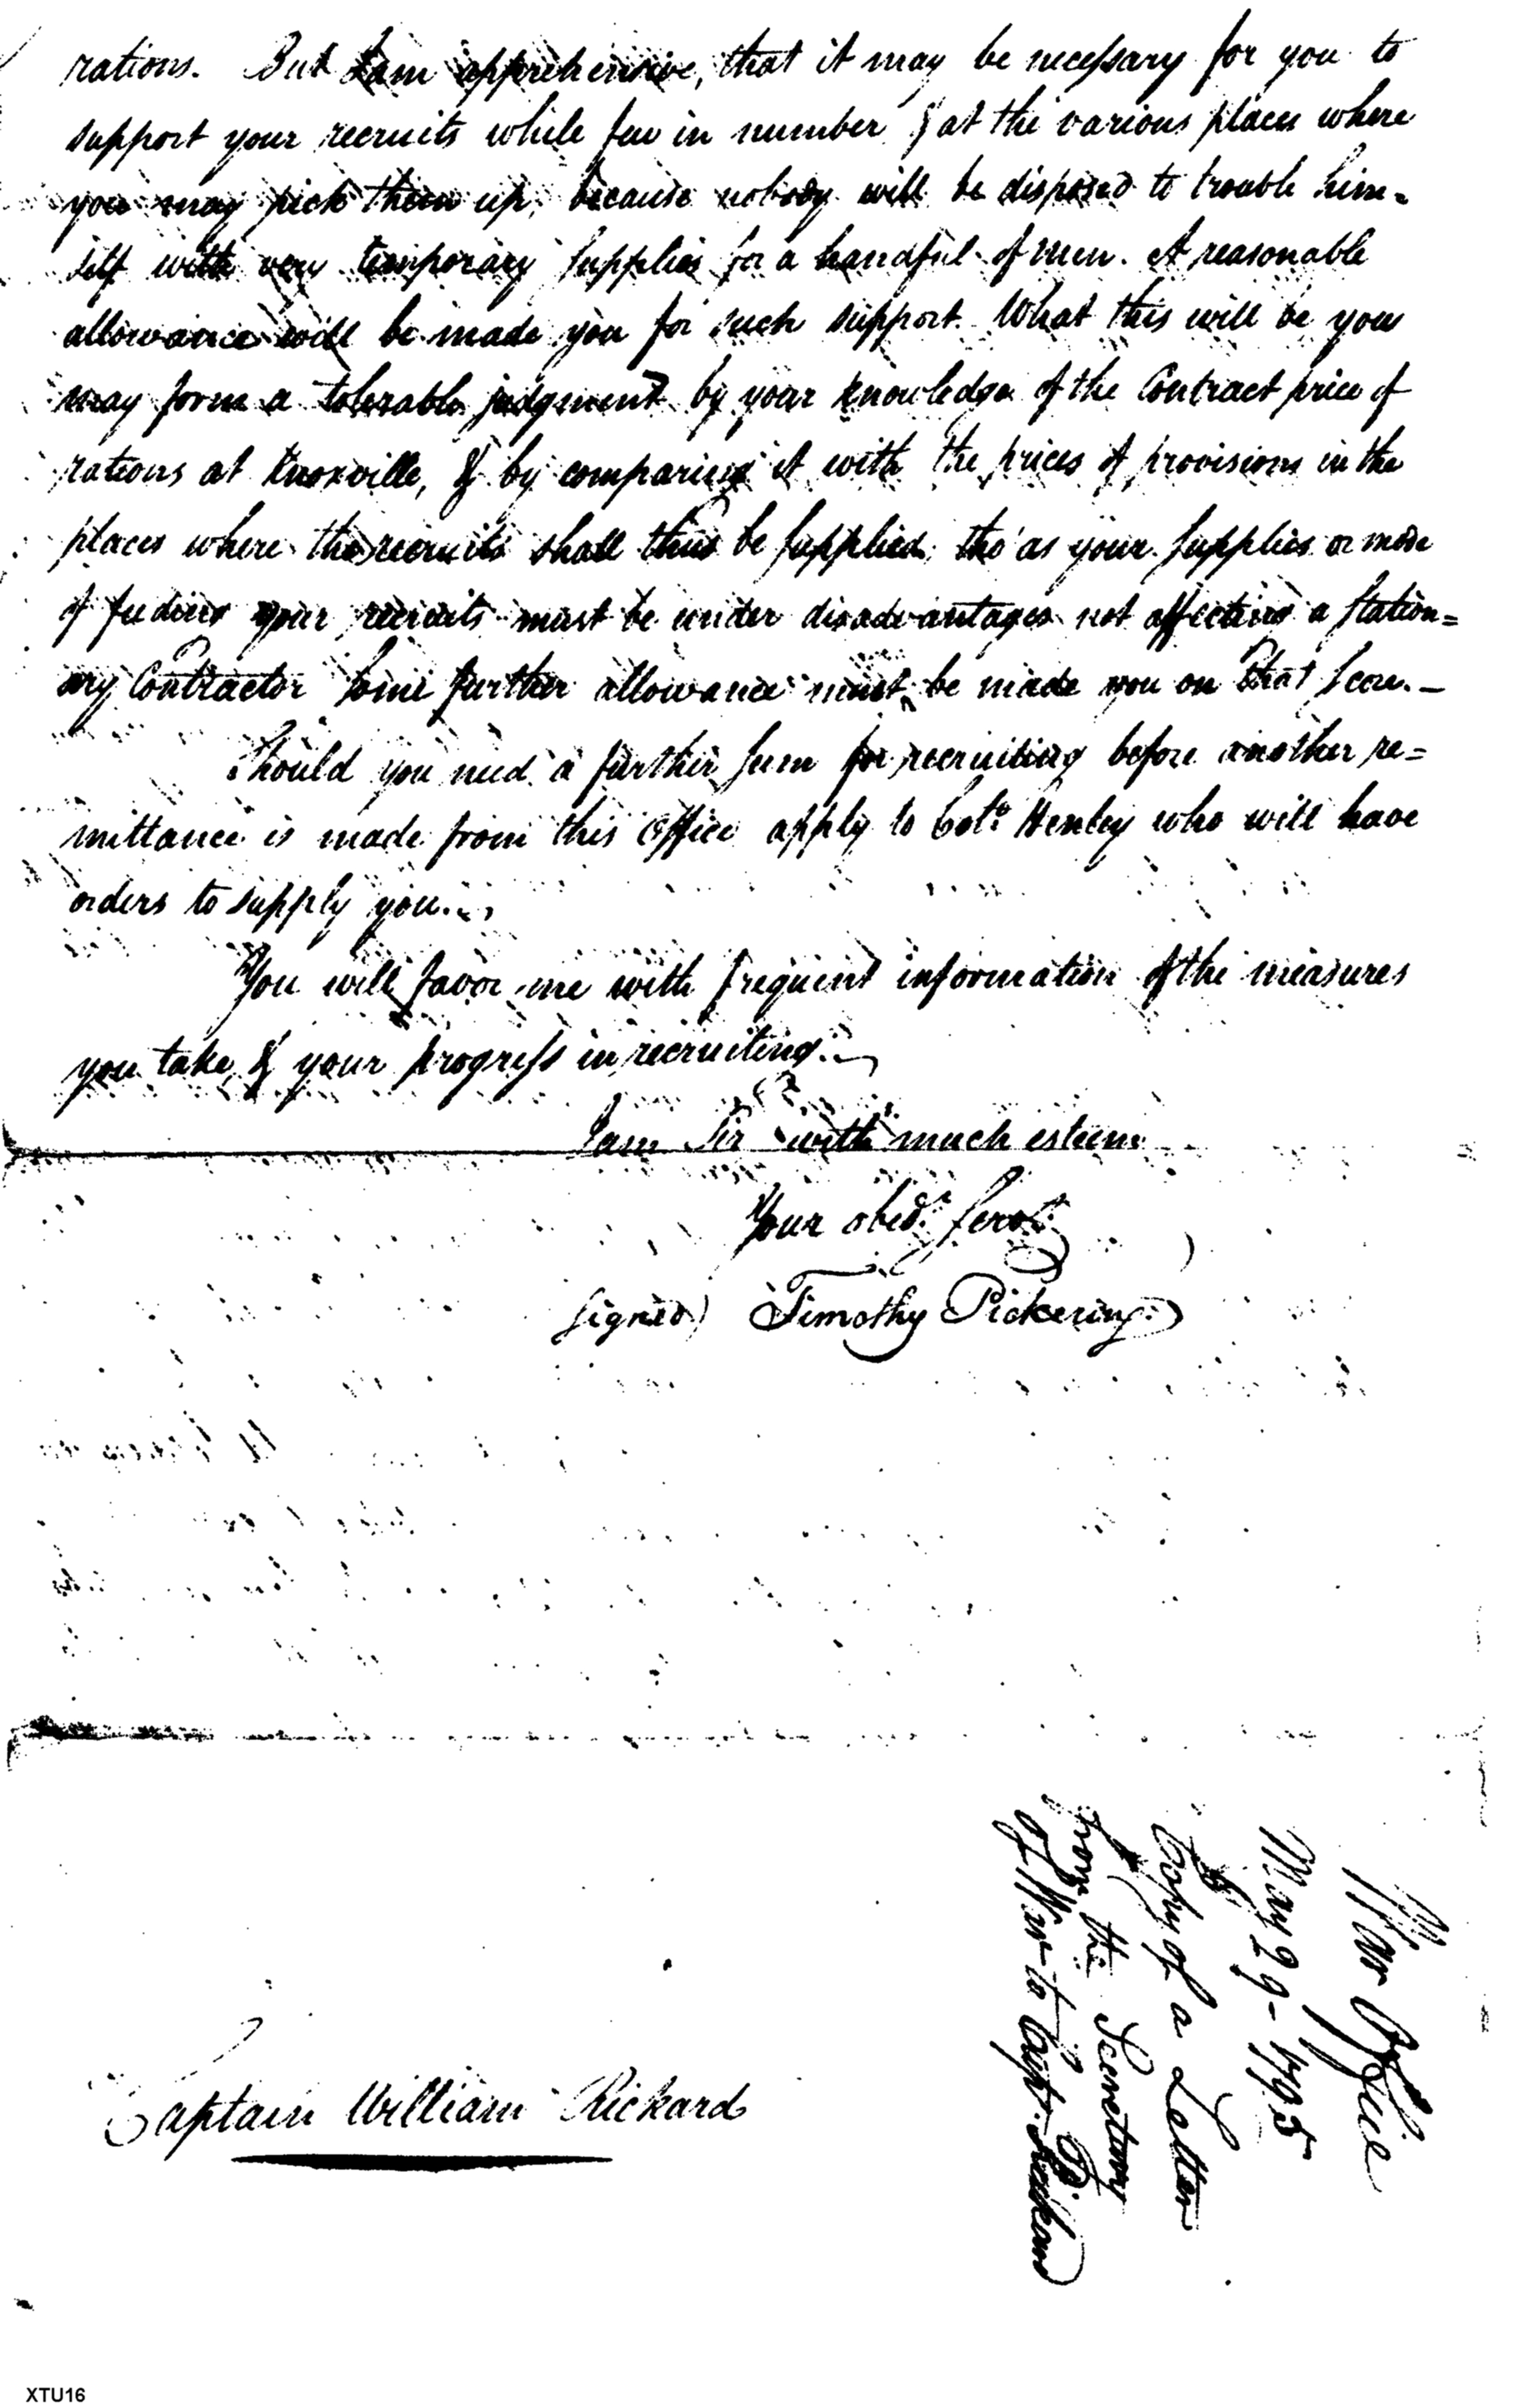 rations. But I am apprehensive, that it may be necessary for you to
support your recruits while few in number & at the various places where
you may pick them up, because nobody will be disposed to trouble him=
self with very temporary supplies for a handful of men. A reasonable
allowance will be made you for such support. What this will be you
may form a tolerable judgment by your knowledge of the Contract price of
rations at Knoxville, & by comparing it with the prices of provisions in the
places where the recruits shall thus be supplied; tho' as your supplies or mode
of feeding your recruits must be under disadvantages not affecting a station=
ary Contractor some further allowance must be made you on that score. —
Should you need a further sum for recruiting before another re=
mittance is made from this Office apply to Colo. Henley who will have
orders to supply you.
You will favor me with frequent information of the measures
you take, & your progress in recruiting.
I am Sir with much esteem
Your obedt. servt.
signed) Timothy Pickering.)
Captain William Rickard
War Office
May 29- 1795
Copy of a Letter
from the Secretary
of War to Capt. Rickard
XTU16